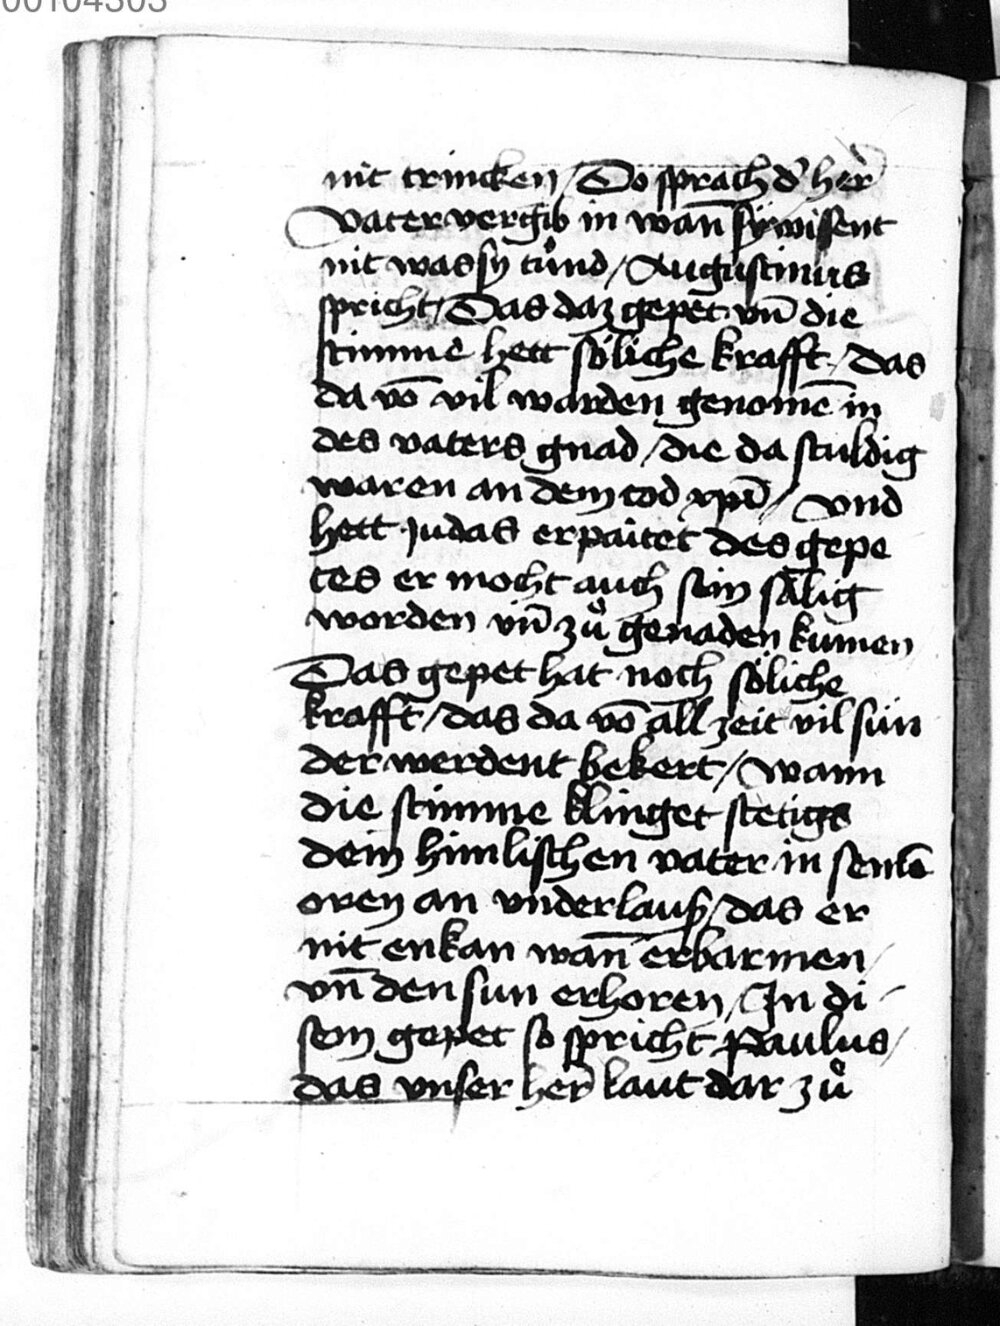 00104303
nit trincken / Do sprach d' her̄
Vater vergib in wan̄ sÿ wissent
nit was sy tůnd / Augustinus
spricht / Das daz gepet vn̄ die
stimme hett söliche krafft / das
da vō vil warden genomē in
des vaters gnad / die da schuldig
waren an dem tod xp̄i / vnd
hett Judas erpaitet des gepe
tes er mocht auch sein sälig
worden vn̄ zů genaden kumen
Das gepet hat noch söliche
krafft / das da vō all zeit vil sün
der werdent bekert / wann
die stimme klinget stetigs
dem himlischen vater in seinē
oren an vnderlauß / das er
nit enkan wan̄ erbarmen /
vn̄ den sun erhoren / In di
sem gepet so spricht Paulus /
das vnser her̄ laut dar zů